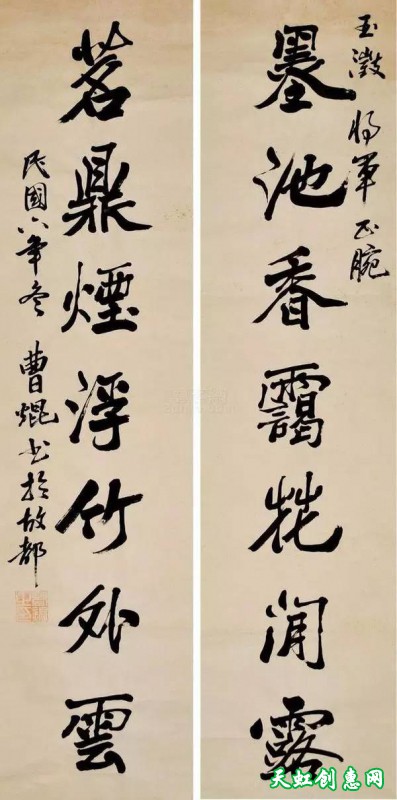 玉澂将軍正腕
墨池香靄花間露
茗鼎煙浮竹外雲
民國八年冬 曹焜书於故都
天虹创惠网